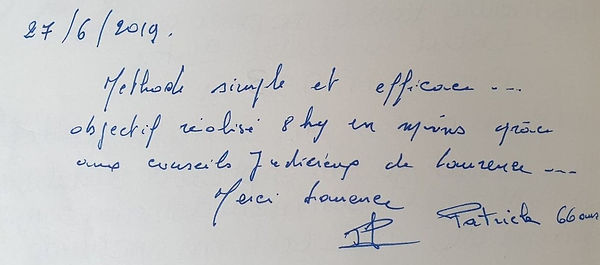 27/6/2019.
Methode simple et efficace ---
objectif réalisé 8 kg en moins grâce
aux conseils Judicieux de Laurence ---
Merci Laurence
Patrick 66 ans